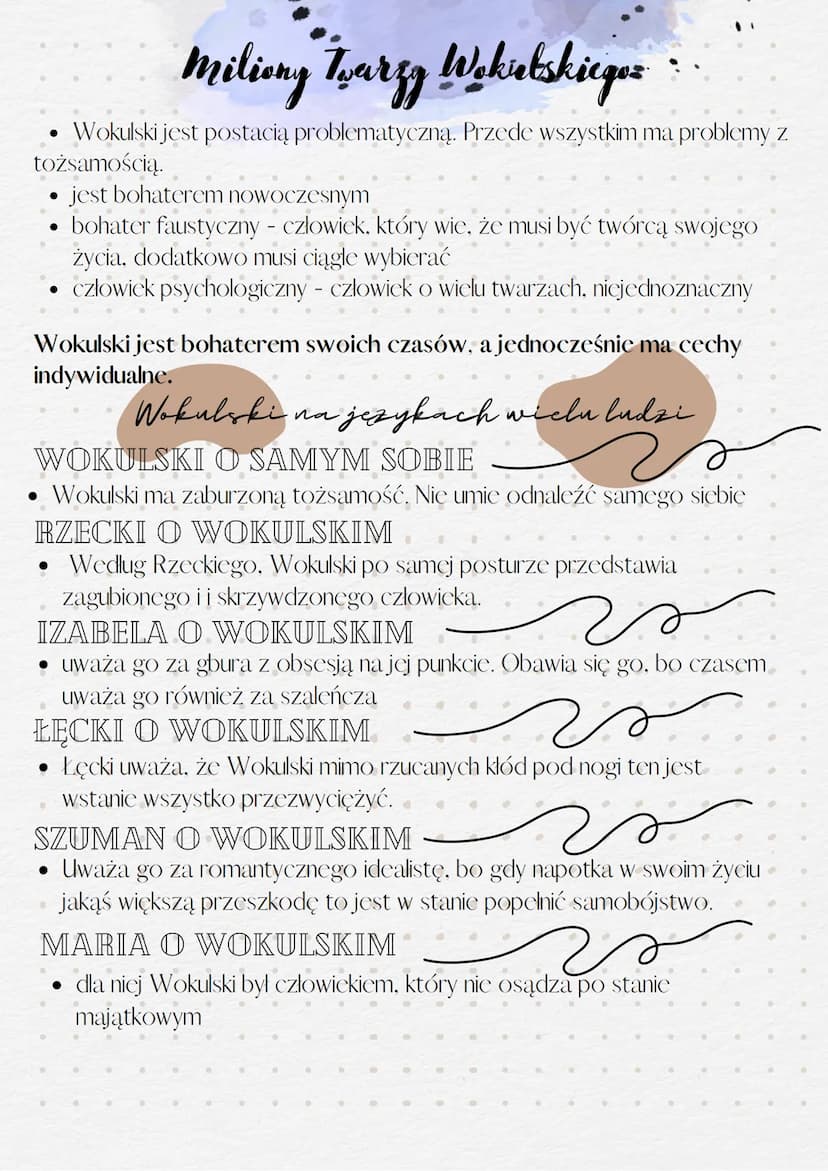 Miliony Twarzy Wokulskiego
• Wokulski jest postacią problematyczną. Przede wszystkim ma problemy z
tożsamością.
• jest bohaterem nowoczesnym
• bohater faustyczny - człowiek, który wie, że musi być twórcą swojego
życia, dodatkowo musi ciągle wybierać
• człowiek psychologiczny - człowiek o wielu twarzach, niejednoznaczny
Wokulski jest bohaterem swoich czasów, a jednocześnie ma cechy
indywidualne.
Wokulski na językach wielu ludzi
WOKULSKI O SAMYM SOBIE
• Wokulski ma zaburzoną tożsamość. Nie umie odnaleźć samego siebie
RZECKI O WOKULSKIM
• Według Rzeckiego, Wokulski po samej posturze przedstawia
zagubionego i i skrzywdzonego człowieka.
IZABELA O WOKULSKIM
• uważa go za gbura z obsesją na jej punkcie. Obawia się go, bo czasem
uważa go również za szaleńcza
ŁĘCKI O WOKULSKIM
• Łęcki uważa, że Wokulski mimo rzucanych kłód pod nogi ten jest
wstanie wszystko przezwyciężyć.
SZUMAN O WOKULSKIM
• Uważa go za romantycznego idealistę, bo gdy napotka w swoim życiu
jakąś większą przeszkodę to jest w stanie popełnić samobójstwo.
MARIA O WOKULSKIM
• dla niej Wokulski był człowiekiem, który nie osądza po stanie
majątkowym